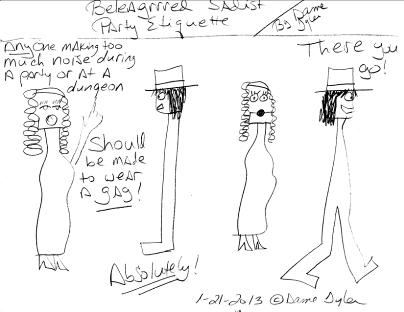 BeleAgrrred SAdist
PArty Etiquette
By Dame
Dyler
Anyone mAking too
much noise during
A pArty or At A
dungeon
Should
be mAde
to weAr
A gAg!
Absolutely!
There you
go!
1-21-2013 ©Dame Dyler